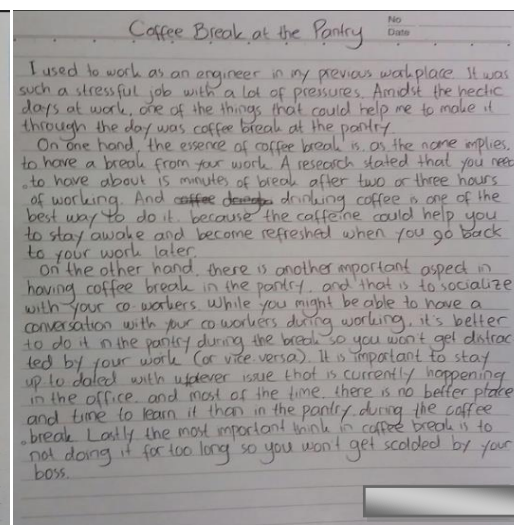 Coffee Break at the Pantry
No
Date
I used to work as an engineer in my previous workplace. It was
such a stressful job with a lot of pressures. Amidst the hectic
days at work, one of the things that could help me to make it
through the day was coffee break at the pantry.
On one hand, the essence of coffee break is, as the name implies,
to have a break from your work. A research stated that you need
to have about 15 minutes of break after two or three hours
of working. And drinking coffee is one of the
best way to do it, because the caffeine could help you
to stay awake and become refreshed when you go back
to your work later.
On the other hand, there is another important aspect in
having coffee break in the pantry, and that is to socialize
with your co-workers. While you might be able to have a
conversation with your co workers during working, it's better
to do it in the pantry during the break so you won't get distrac
ted by your work (or vice versa). It is important to stay
up to dated with whatever issue that is currently happening
in the office, and most of the time, there is no better place
and time to learn it than in the pantry, during the coffee
break. Lastly the most important think in coffee break is to
not doing it for too long so you won't get scolded by your
boss.